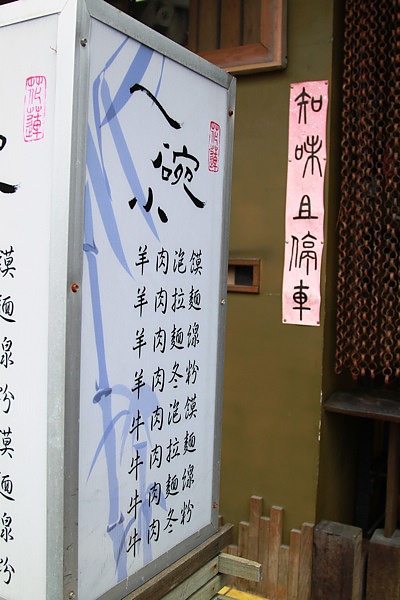 花蓮
饃
麵
線
粉
饃
麵
線
粉
花蓮
碗
小
羊肉泡饃
羊肉拉麵
羊肉麵線
羊肉冬粉
牛肉泡饃
牛肉拉麵
牛肉麵線
牛肉冬粉
知味且停車